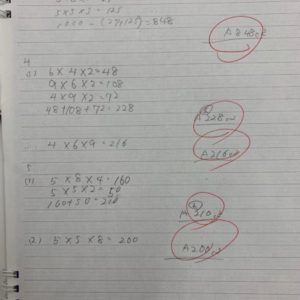 5×5×5=125
1000-(27+125)=848
A 848cm³
4
(1) 6×4×2=48
9×6×2=108
4×9×2=72
48+108+72=228
A 228cm²
4×6×9=216
A 216cm³
5
(1) 5×8×4=160
5×5×2=50
160+50=210
A 210cm²
(2) 5×5×8=200
A 200cm³